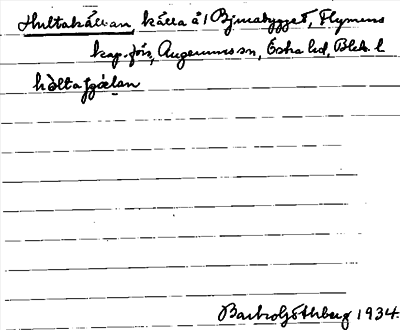 Hultakällan, källa å 1 Bjurabygget, Flymens
kap.förs, Augerums sn, Östra hd, Blek. l
hòltaɟɕælan
Barbro Götherberg 1934.